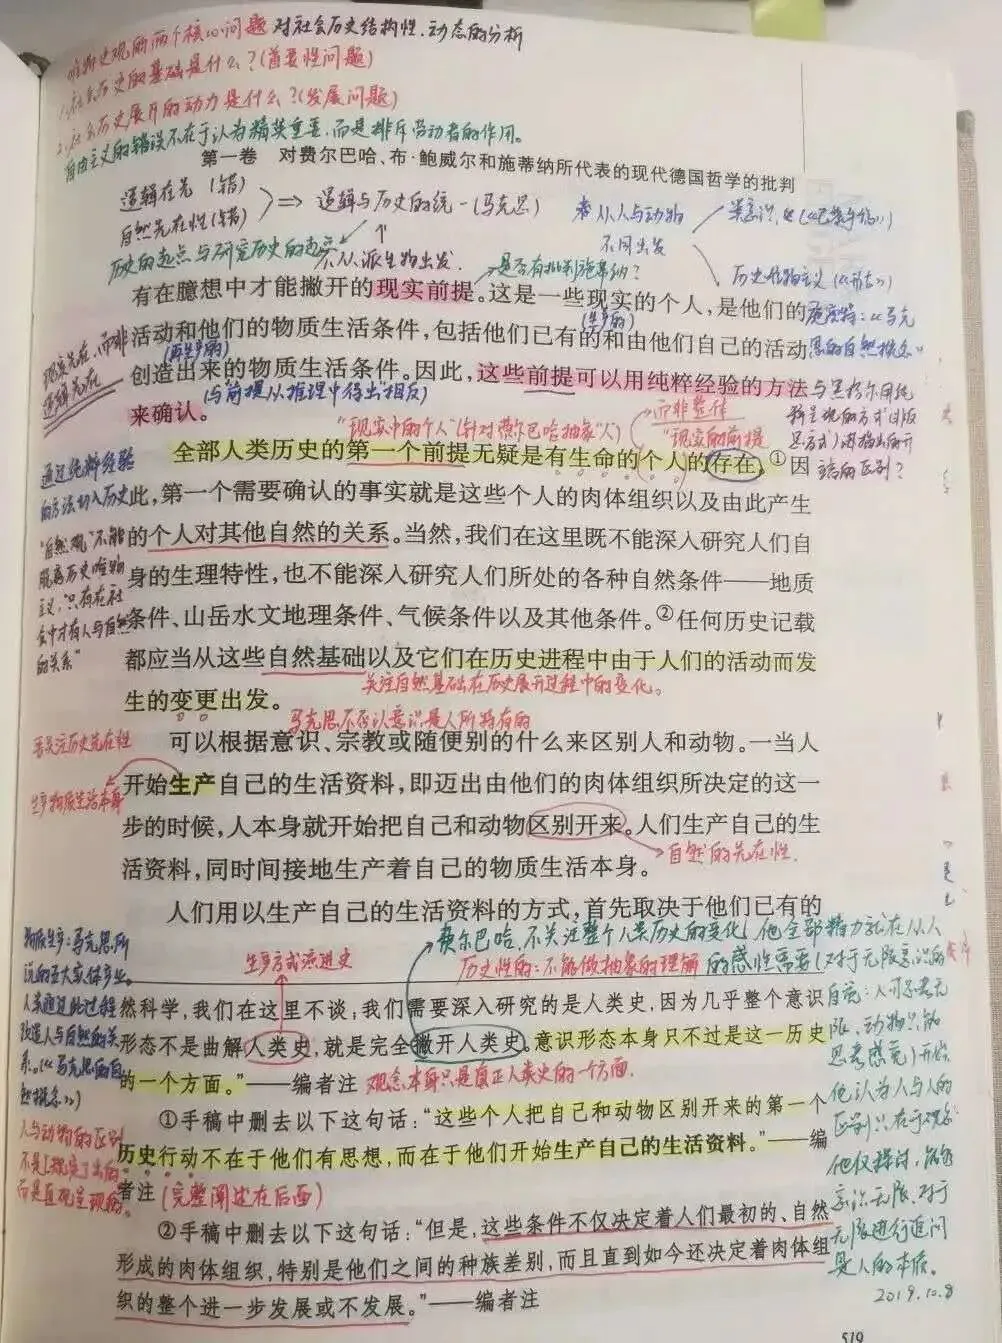 唯物史观的两个核心问题 对社会历史结构性、动态的分析
1.社会历史的基础是什么?(首要性问题)
2.社会历史展开的动力是什么?(发展问题)
自由主义的错误不在于认为精英重要,而是排斥劳动者的作用。
第一卷 对费尔巴哈、布·鲍威尔和施蒂纳所代表的现代德国哲学的批判
逻辑在先(错)
自然先在性(错)
⇒ 逻辑与历史的统一(马克思)
从人与动物
不同出发
历史的起点与研究历史的起点
不从派生物出发.
是否有批判施蒂纳?
历史唯物主义
有在臆想中才能撇开的现实前提。这是一些现实的个人,是他们的
(生产的)
活动和他们的物质生活条件,包括他们已有的和由他们自己的活动
(再生产的)
创造出来的物质生活条件。因此,这些前提可以用纯粹经验的方法
(与前提从推理中得出相反)
来确认。
现实先在,而非
逻辑先在
施密特:《马克
思的自然概念》
而非整体
“现实中的个人”(针对费尔巴哈抽象“人”)
“现实的前提
全部人类历史的第一个前提无疑是有生命的个人的存在。①因
此,第一个需要确认的事实就是这些个人的肉体组织以及由此产生
的个人对其他自然的关系。当然,我们在这里既不能深入研究人们自
身的生理特性,也不能深入研究人们所处的各种自然条件——地质
条件、山岳水文地理条件、气候条件以及其他条件。②任何历史记载
都应当从这些自然基础以及它们在历史进程中由于人们的活动而发
关注自然基础在历史展开过程中的变化。
生的变更出发。
通过纯粹经验
的方法切入历史
“自然观”不能
脱离历史唯物
主义,只有在社
会中才有人与自然
的关系”
马克思不否认意识是人所特有的
可以根据意识、宗教或随便别的什么来区别人和动物。一当人
开始生产自己的生活资料,即迈出由他们的肉体组织所决定的这一
步的时候,人本身就开始把自己和动物区别开来。人们生产自己的生
自然的先在性.
活资料,同时间接地生产着自己的物质生活本身。
生产物质生活本身
人们用以生产自己的生活资料的方式,首先取决于他们已有的
费尔巴哈不关注整个人类历史的变化,他全部精力就在从人
生产方式演进史
历史性的:不能做抽象的理解
的感性需要(对于无限意识的
然科学,我们在这里不谈;我们需要深入研究的是人类史,因为几乎整个意识
形态不是曲解人类史,就是完全撇开人类史。意识形态本身只不过是这一历史
的一个方面。”——编者注
观念本身只是真正人类史的一方面.
①手稿中删去以下这句话:“这些个人把自己和动物区别开来的第一个
历史行动不在于他们有思想,而在于他们开始生产自己的生活资料。”——编
者注
(完整阐述在后面)
②手稿中删去以下这句话:“但是,这些条件不仅决定着人们最初的、自然
形成的肉体组织,特别是他们之间的种族差别,而且直到如今还决定着肉体组
织的整个进一步发展或不发展。”——编者注
物质生产:马克思所
人类通过此过程
改造人与自然的关
系。
人与动物的区别
他认为人与人的
区别只在于观念
无限进行追问
是人的本质。
2019.10.8
519